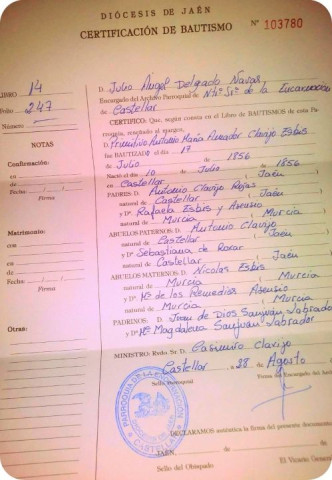 DIÓCESIS DE JAÉN
CERTIFICACIÓN DE BAUTISMO
Nº 103780
LIBRO 14
Folio 247
Número
NOTAS
Confirmación:
en
de
Fecha: / /
Firma
Matrimonio:
con
en
de
Fecha: / /
Firma
Otras:
D. Julio Angel Delgado Navas,
Encargado del Archivo Parroquial de Ntª Srª de la Encarnación
de Castellar
CERTIFICO: Que, según consta en el Libro de BAUTISMOS de esta Pa-
rroquia, reseñado al margen,
D. Primitivo Antonio María Amador Clavijo Esbis
fue BAUTIZADO el 17
de Julio de 1856
Nació el día 10 de Julio de 1856
en Castellar (Jaén)
PADRES: D. Antonio Clavijo Rojas
natural de Castellar (Jaén)
y Dª Rafaela Esbis y Asensio
natural de Murcia (Murcia)
ABUELOS PATERNOS: D. Antonio Clavijo
natural de Castellar (Jaén)
y Dª Sebastiana de
natural de Castellar (Jaén)
ABUELOS MATERNOS: D. Nicolas Esbis
natural de Murcia (Murcia)
y Dª Mª de los Remedios Asensio
natural de Murcia (Murcia)
PADRINOS: D. Juan de Dios Sanjuan Labrador
y Dª Mª Magdalena Sanjuan Labrador
MINISTRO: Rvdo. Sr. D. Casimiro Clavijo
Castellar, 28 de Agosto
Sello Parroquial
Firma del Encargado del
PARROQUIA DE LA ENCARNACIÓN
CASTELLAR
DECLARAMOS auténtica la firma del presente documento
JAÉN, de de
Sello del Obispado
El Vicario General